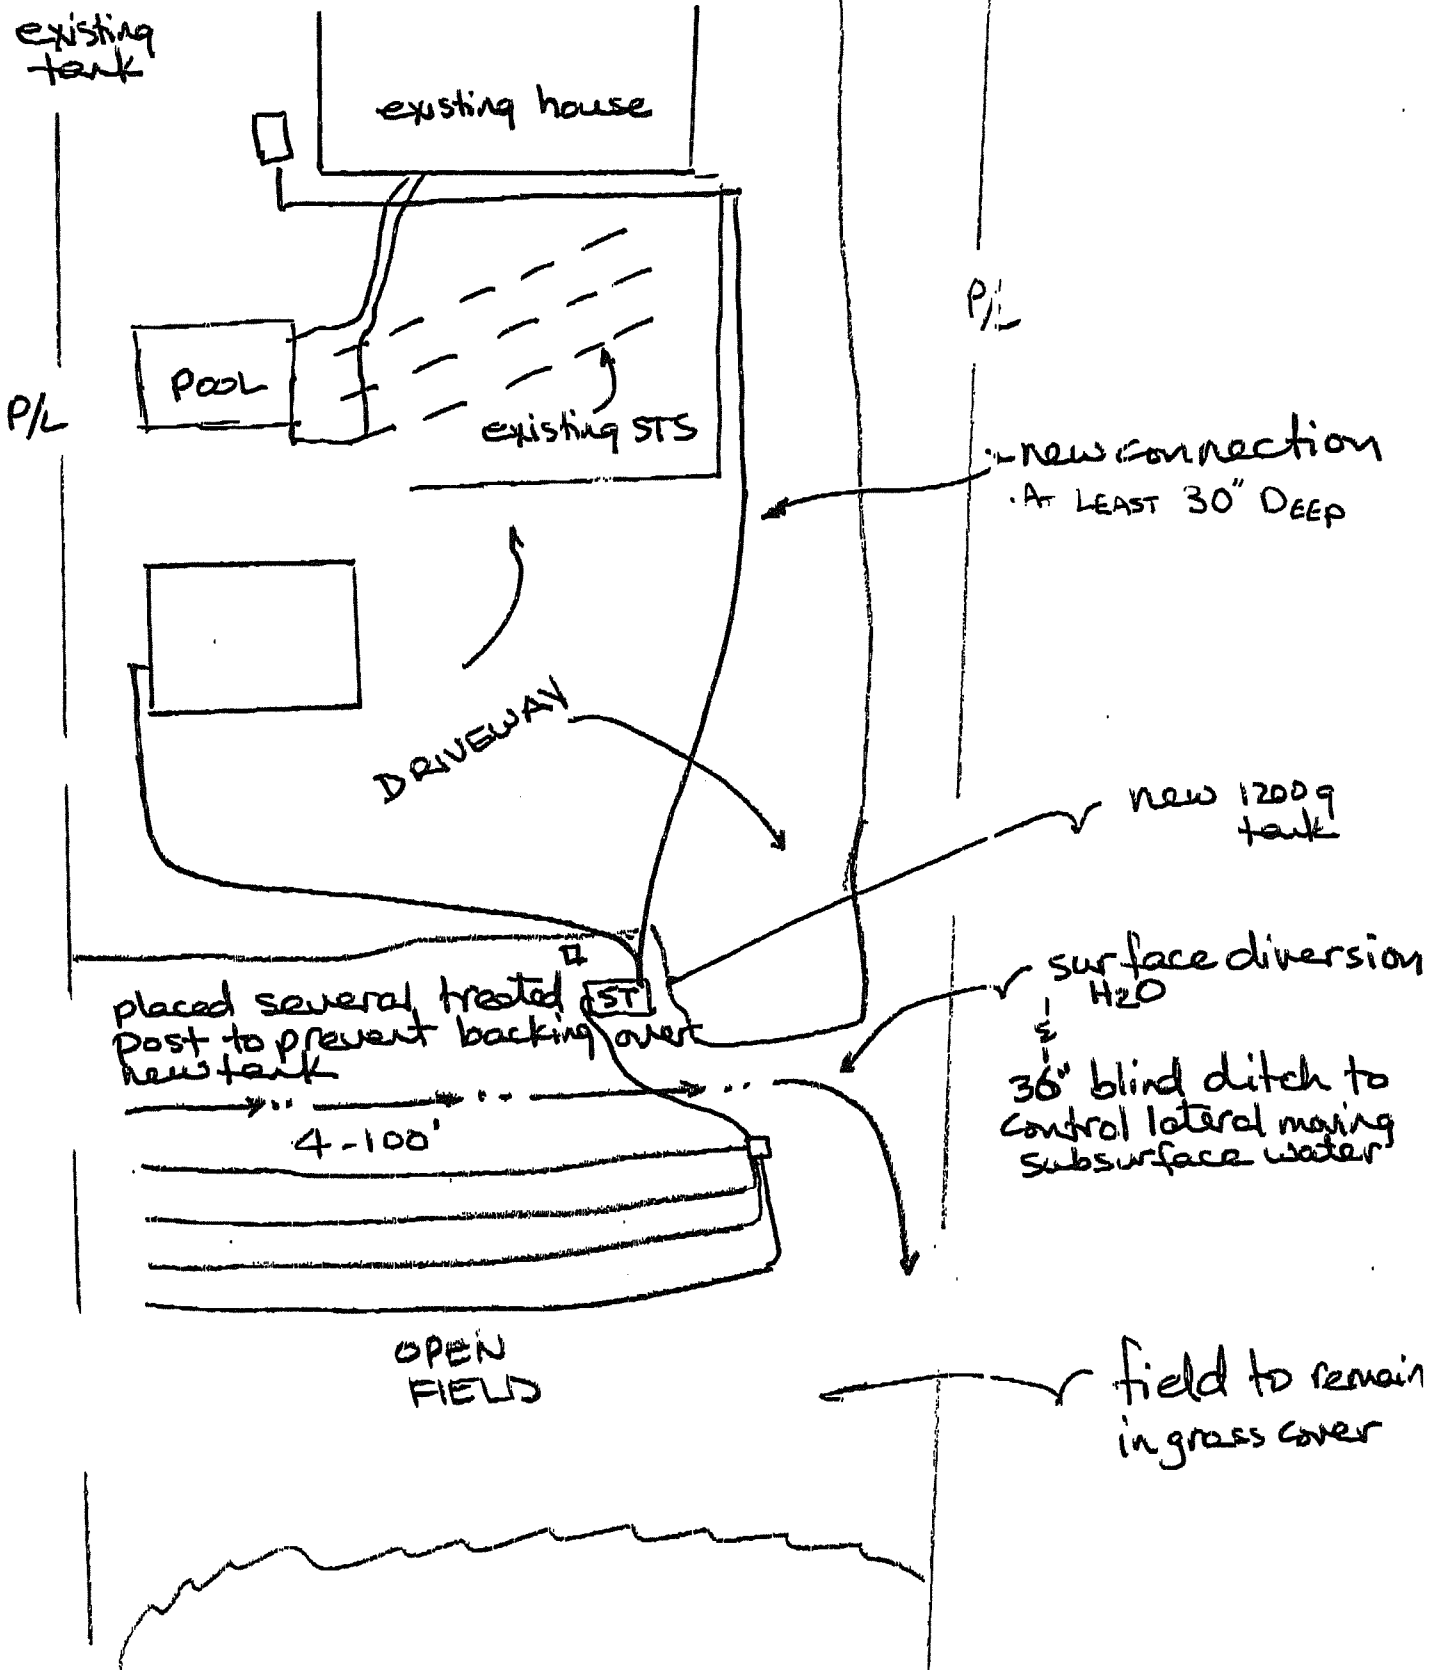 existing
tank
existing house
P/L
POOL
P/L
existing STS
new connection
. AT LEAST 30" DEEP
DRIVEWAY
new 1200g
tank
surface diversion
H2O
&
36" blind ditch to
control lateral moving
subsurface water
placed several treated
post to prevent backing over
new tank
ST
4-100'
OPEN
FIELD
field to remain
in grass cover